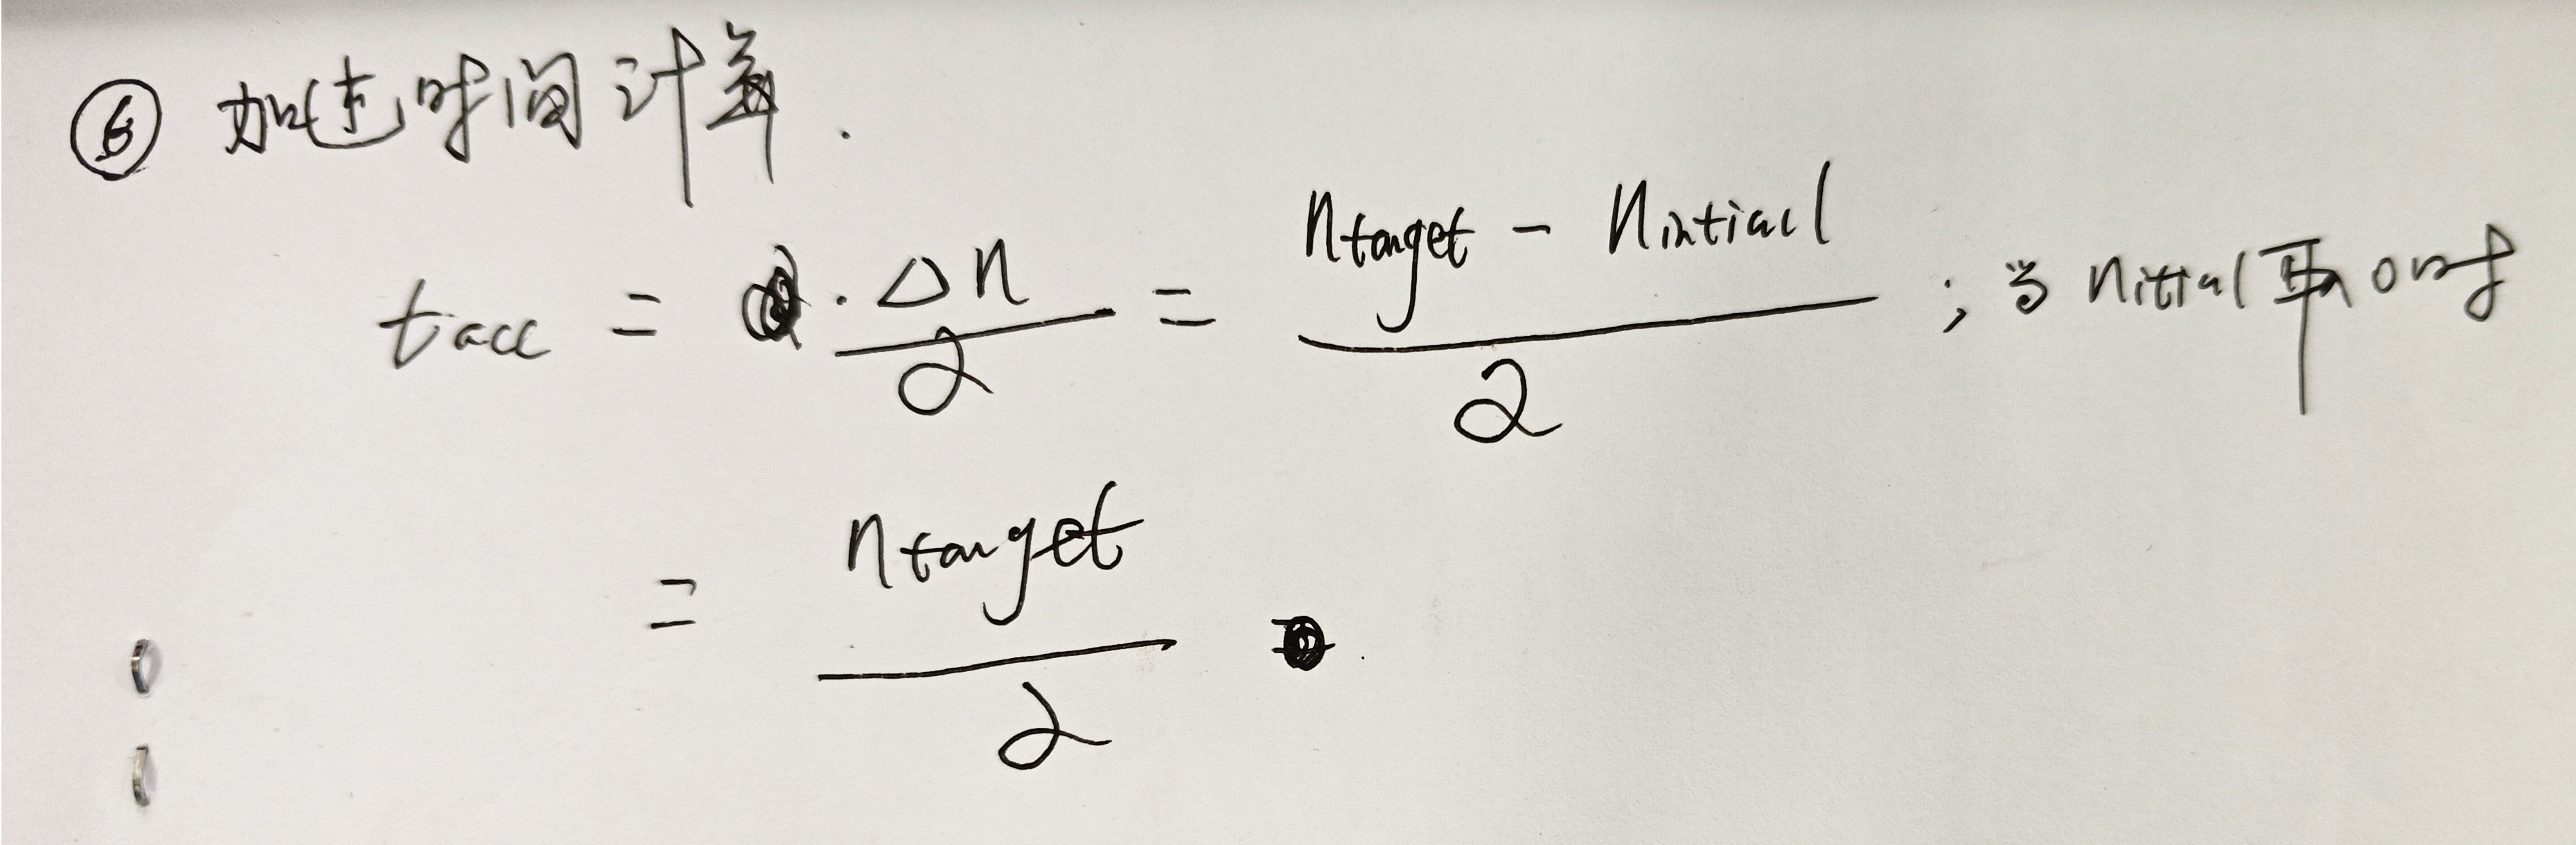 ⑥ 加速时间计算.
t acc = · Δn / α = (n target - n intiacl) / α ; 当 n ittial 取 0 时
= n target / α .